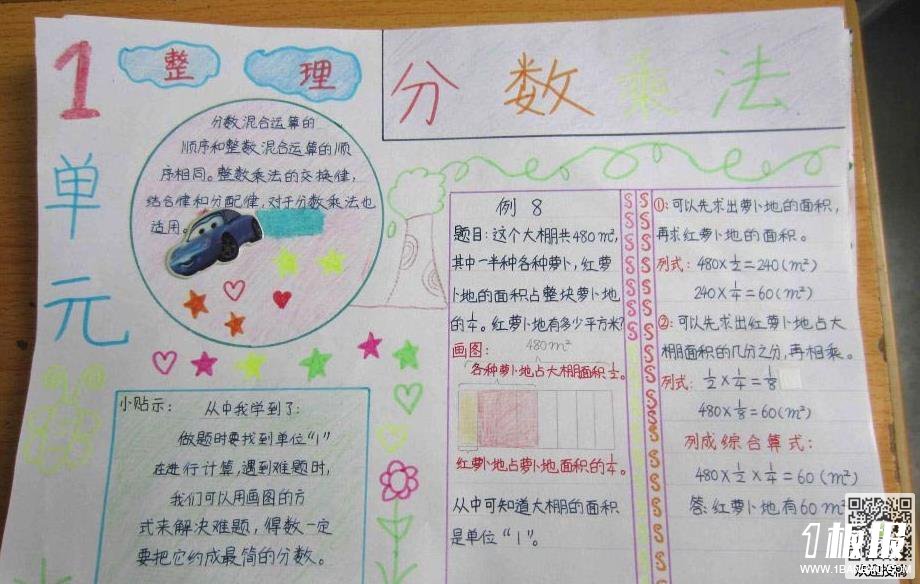 1
单
元
整 理
分数乘法
分数混合运算的
顺序和整数混合运算的顺
序相同。整数乘法的交换律,
结合律和分配律,对于分数乘法也
适用。
小贴示: 从中我学到了:
做题时要找到单位“1”
在进行计算,遇到难题时,
我们可以用画图的方
式来解决难题,得数一定
要把它约成最简的分数。
例 8
题目:这个大棚共480m²,
其中一半种各种萝卜,红萝
卜地的面积占整块萝卜地
的1/4。红萝卜地有多少平方米?
画图: 480m²
各种萝卜地占大棚面积1/2。
红萝卜地占萝卜地面积的1/4。
从中可知道大棚的面积
是单位“1”。
①:可以先求出萝卜地的面积,
再求红萝卜地的面积。
列式: 480×1/2=240(m²)
240×1/4=60(m²)
②:可以先求出红萝卜地占大
棚面积的几分之分,再相乘。
列式: 1/2×1/4=1/8
480×1/8=60(m²)
列成综合算式:
480×1/2×1/4=60(m²)
答:红萝卜地有60m²
1板报
WWW.1BANBAO.COM
欢迎投稿